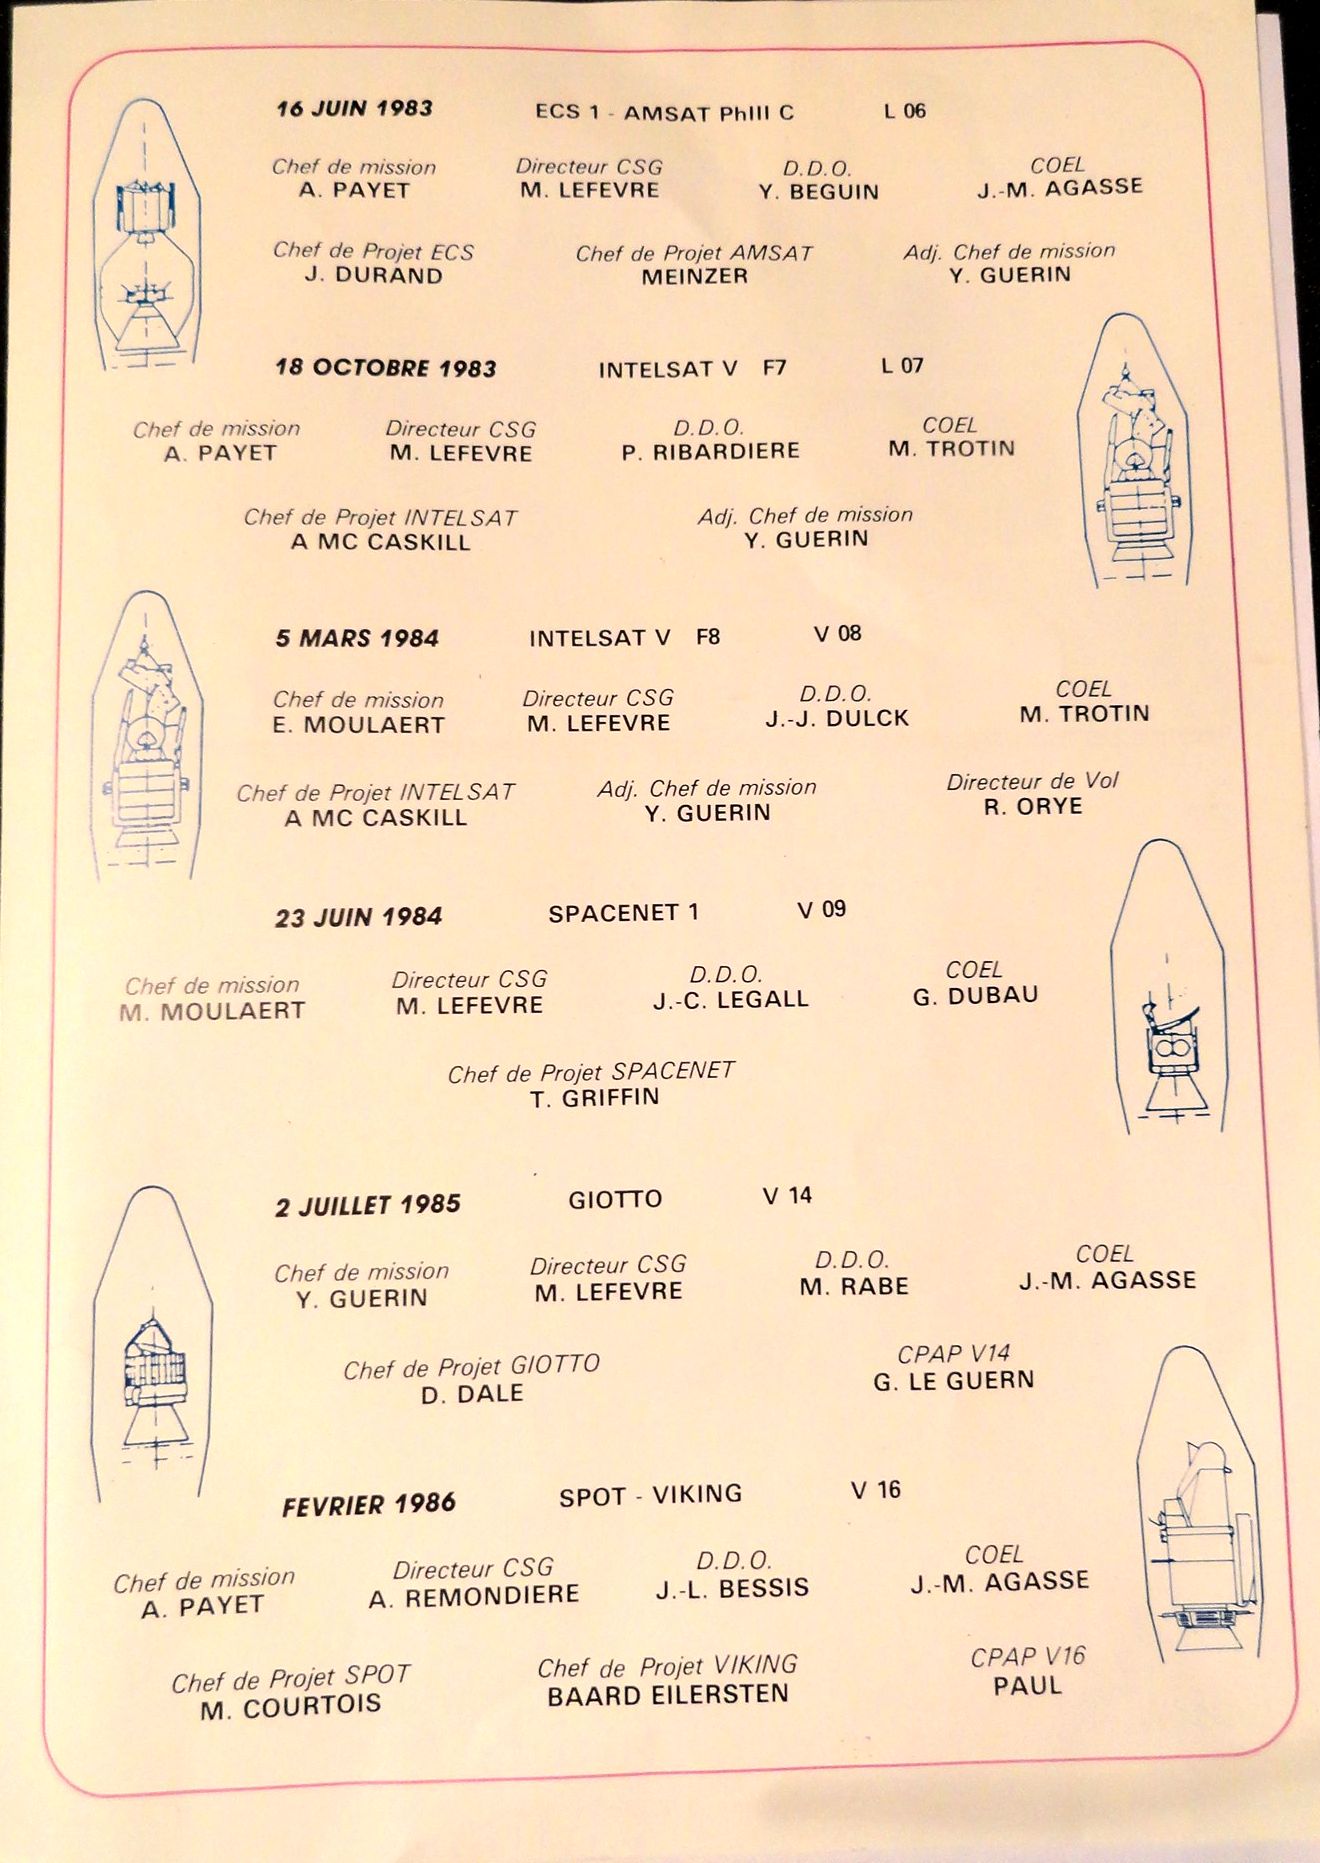 16 JUIN 1983 ECS 1 - AMSAT PhIII C L 06
Chef de mission Directeur CSG D.D.O. COEL
A. PAYET M. LEFEVRE Y. BEGUIN J.-M. AGASSE
Chef de Projet ECS Chef de Projet AMSAT Adj. Chef de mission
J. DURAND MEINZER Y. GUERIN
18 OCTOBRE 1983 INTELSAT V F7 L 07
Chef de mission Directeur CSG D.D.O. COEL
A. PAYET M. LEFEVRE P. RIBARDIERE M. TROTIN
Chef de Projet INTELSAT Adj. Chef de mission
A MC CASKILL Y. GUERIN
5 MARS 1984 INTELSAT V F8 V 08
Chef de mission Directeur CSG D.D.O. COEL
E. MOULAERT M. LEFEVRE J.-J. DULCK M. TROTIN
Chef de Projet INTELSAT Adj. Chef de mission Directeur de Vol
A MC CASKILL Y. GUERIN R. ORYE
23 JUIN 1984 SPACENET 1 V 09
Chef de mission Directeur CSG D.D.O. COEL
M. MOULAERT M. LEFEVRE J.-C. LEGALL G. DUBAU
Chef de Projet SPACENET
T. GRIFFIN
2 JUILLET 1985 GIOTTO V 14
Chef de mission Directeur CSG D.D.O. COEL
Y. GUERIN M. LEFEVRE M. RABE J.-M. AGASSE
Chef de Projet GIOTTO CPAP V14
D. DALE G. LE GUERN
FEVRIER 1986 SPOT - VIKING V 16
Chef de mission Directeur CSG D.D.O. COEL
A. PAYET A. REMONDIERE J.-L. BESSIS J.-M. AGASSE
Chef de Projet SPOT Chef de Projet VIKING CPAP V16
M. COURTOIS BAARD EILERSTEN PAUL